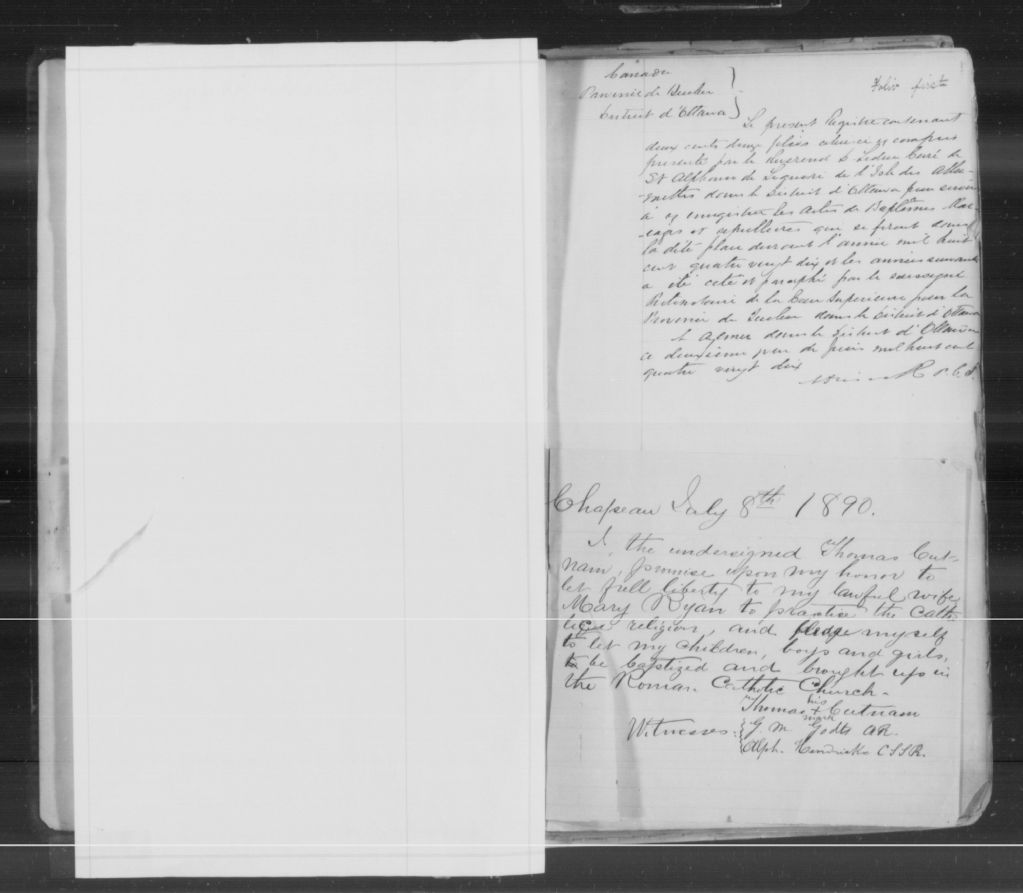 Canada
Province de Quebec
District d'Ottawa
Folio first
Le present Registre contenant
deux cents deux folios celui-ci y compris
presenté par le Reverend Leduc Curé de
St Alphonse de Liguori de l'Isle des Allu-
-mettes dans le District d'Ottawa pour servir
à y enregistrer les actes de Baptêmes Mar-
iages et sepultures que se firont dans
la dite place durant l'année mil huit
cent quatre vingt dix et les années suivantes
a été coté et paraphé par le soussigné
Protonotaire de la Cour Superieure pour la
Province de Quebec dans le District d'Ottawa
A Aylmer dans le District d'Ottawa
ce deuxieme jour de juin mil huit cent
quatre vingt dix
P.C.S.
Chapeau July 8th 1890.
I, the undersigned Thomas Cut-
nam, promise upon my honor to
let full liberty to my lawful wife
Mary Ryan to practise the Cath-
lic religion, and pledge myself
to let my children, boys and girls,
to be baptized and brought up in
the Roman Catholic Church.
his
Thomas + Cutnam
mark
Witnesses: G. M. Godts
Alph. Hendrickx CSSR.